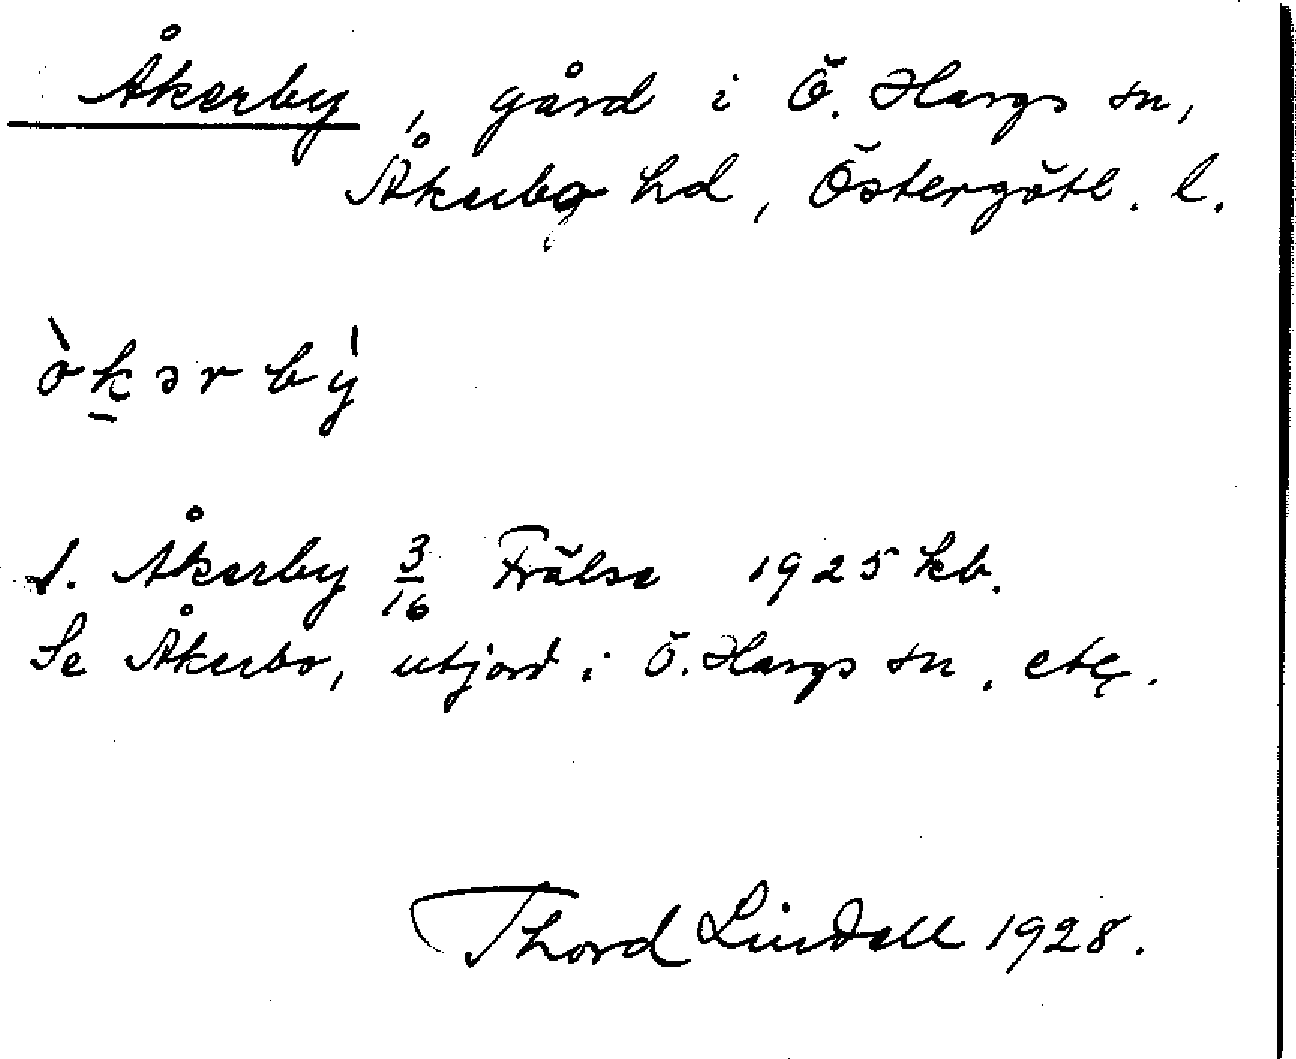 Åkerby, gård i Ö. Hargs sn,
Åkerbo hd, Östergötl. l.
òkərbỳ
d. Åkerby 3/16 Frälse 1925 kb.
Se Åkerbo, utjord i Ö. Hargs sn. etc.
Thord Lindell 1928.